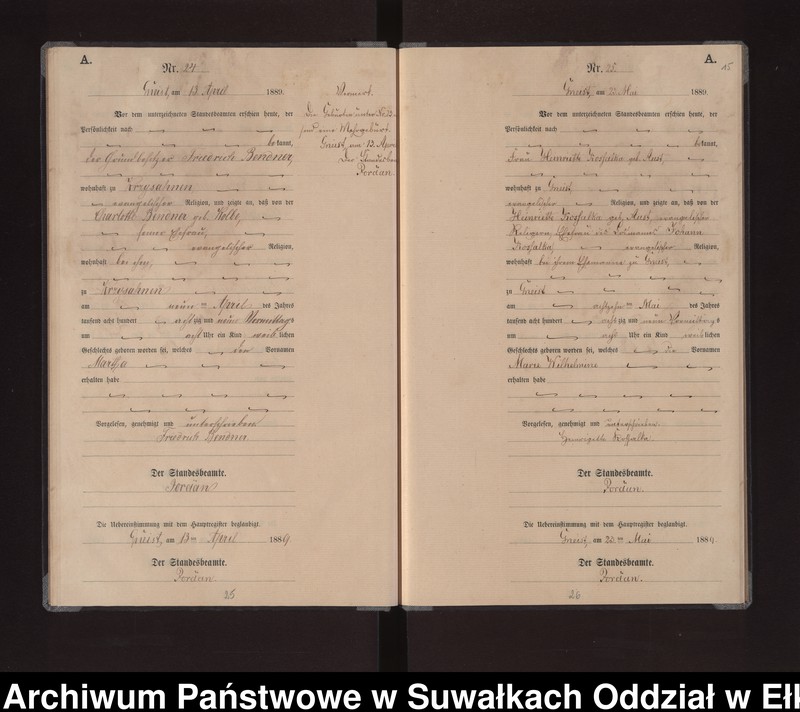 A.
Nr. 24
Gneist, am 13 April 1889.
Vor dem unterzeichneten Standesbeamten erschien heute, der
Persönlichkeit nach
bekannt,
der Grundbesitzer Friedrich
wohnhaft zu
evangelischer Religion, und zeigte an, daß von der
Charlotte geb.
seiner Ehefrau,
evangelischer Religion,
wohnhaft bei ihm,
zu
am neunten April des Jahres
tausend acht hundert achtzig und neun Vormittags
um acht Uhr ein Kind weiblichen
Geschlechts geboren worden sei, welches den Vornamen
Martha
erhalten habe
Vorgelesen, genehmigt und unterschrieben
Friedrich
Der Standesbeamte.
Jordan
Die Uebereinstimmung mit dem Hauptregister beglaubigt.
Gneist, am 13ten April 1889.
Der Standesbeamte.
Jordan
25
Vermerk.
Die Geburten unter No
sind eine
Gneist, am 13. April
Der Standesbe
Jordan
A.
15
Nr. 25.
Gneist, am 20 Mai 1889
Vor dem unterzeichneten Standesbeamten erschien heute, der
Persönlichkeit nach
bekannt,
Frau Heinriette Kossalka geb.
wohnhaft zu Gneist
evangelischer Religion, und zeigte an, daß von der
Heinriette Kossalka geb. evangelischer
Religion, Ehefrau des Johann
Kossalka evangelischer Religion,
wohnhaft bei ihrem Ehemanne zu Gneist,
zu Gneist
am achtzehnten Mai des Jahres
tausend acht hundert achtzig und neun Vormittags
um acht Uhr ein Kind weiblichen
Geschlechts geboren worden sei, welches die Vornamen
Marie Wilhelmine
erhalten habe
Vorgelesen, genehmigt und unterschrieben.
Kossalka
Der Standesbeamte.
Jordan.
Die Uebereinstimmung mit dem Hauptregister beglaubigt.
Gneist, am 20ten Mai 1889
Der Standesbeamte.
Jordan.
26
Archiwum Państwowe w Suwałkach Oddział w Ełk